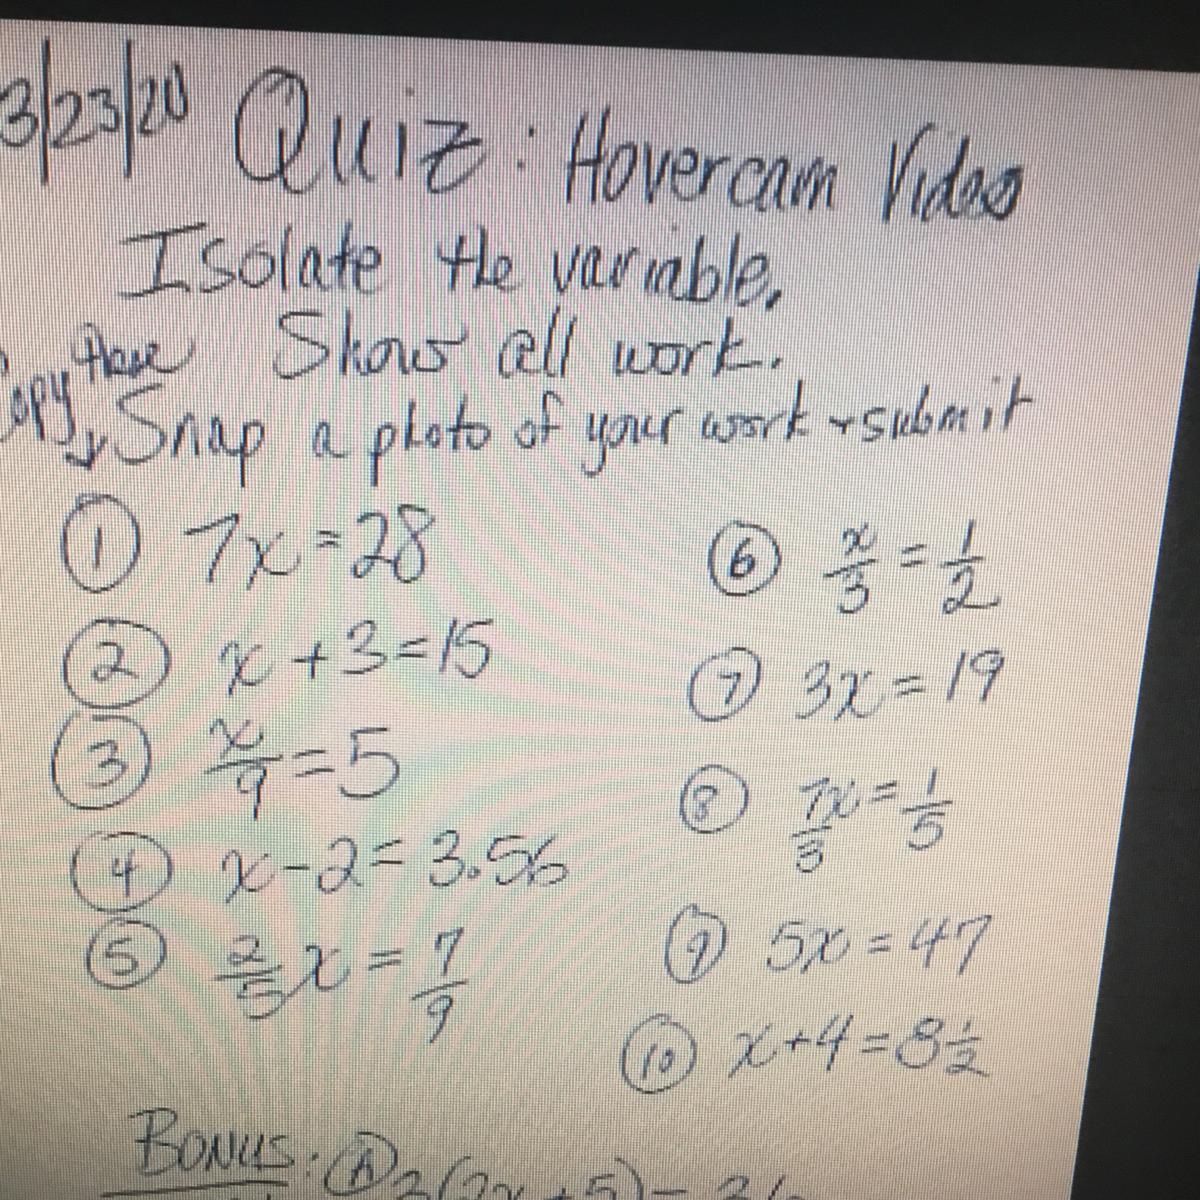 3/23/20 Quiz: Hovercam Video
Isolate the variable.
Show all work.
Copy these
& Snap a photo of your work & submit
① 7x = 28
② x + 3 = 15
③ x/9 = 5
④ x - 2 = 3.56
⑤ 2/5 x = 7/9
⑥ x/3 = 1/2
⑦ 3x = 19
⑧ 7x/3 = 1/5
⑨ 5x = 47
⑩ x + 4 = 8 1/2
Bonus: Ⓐ 2(2x + 5) =